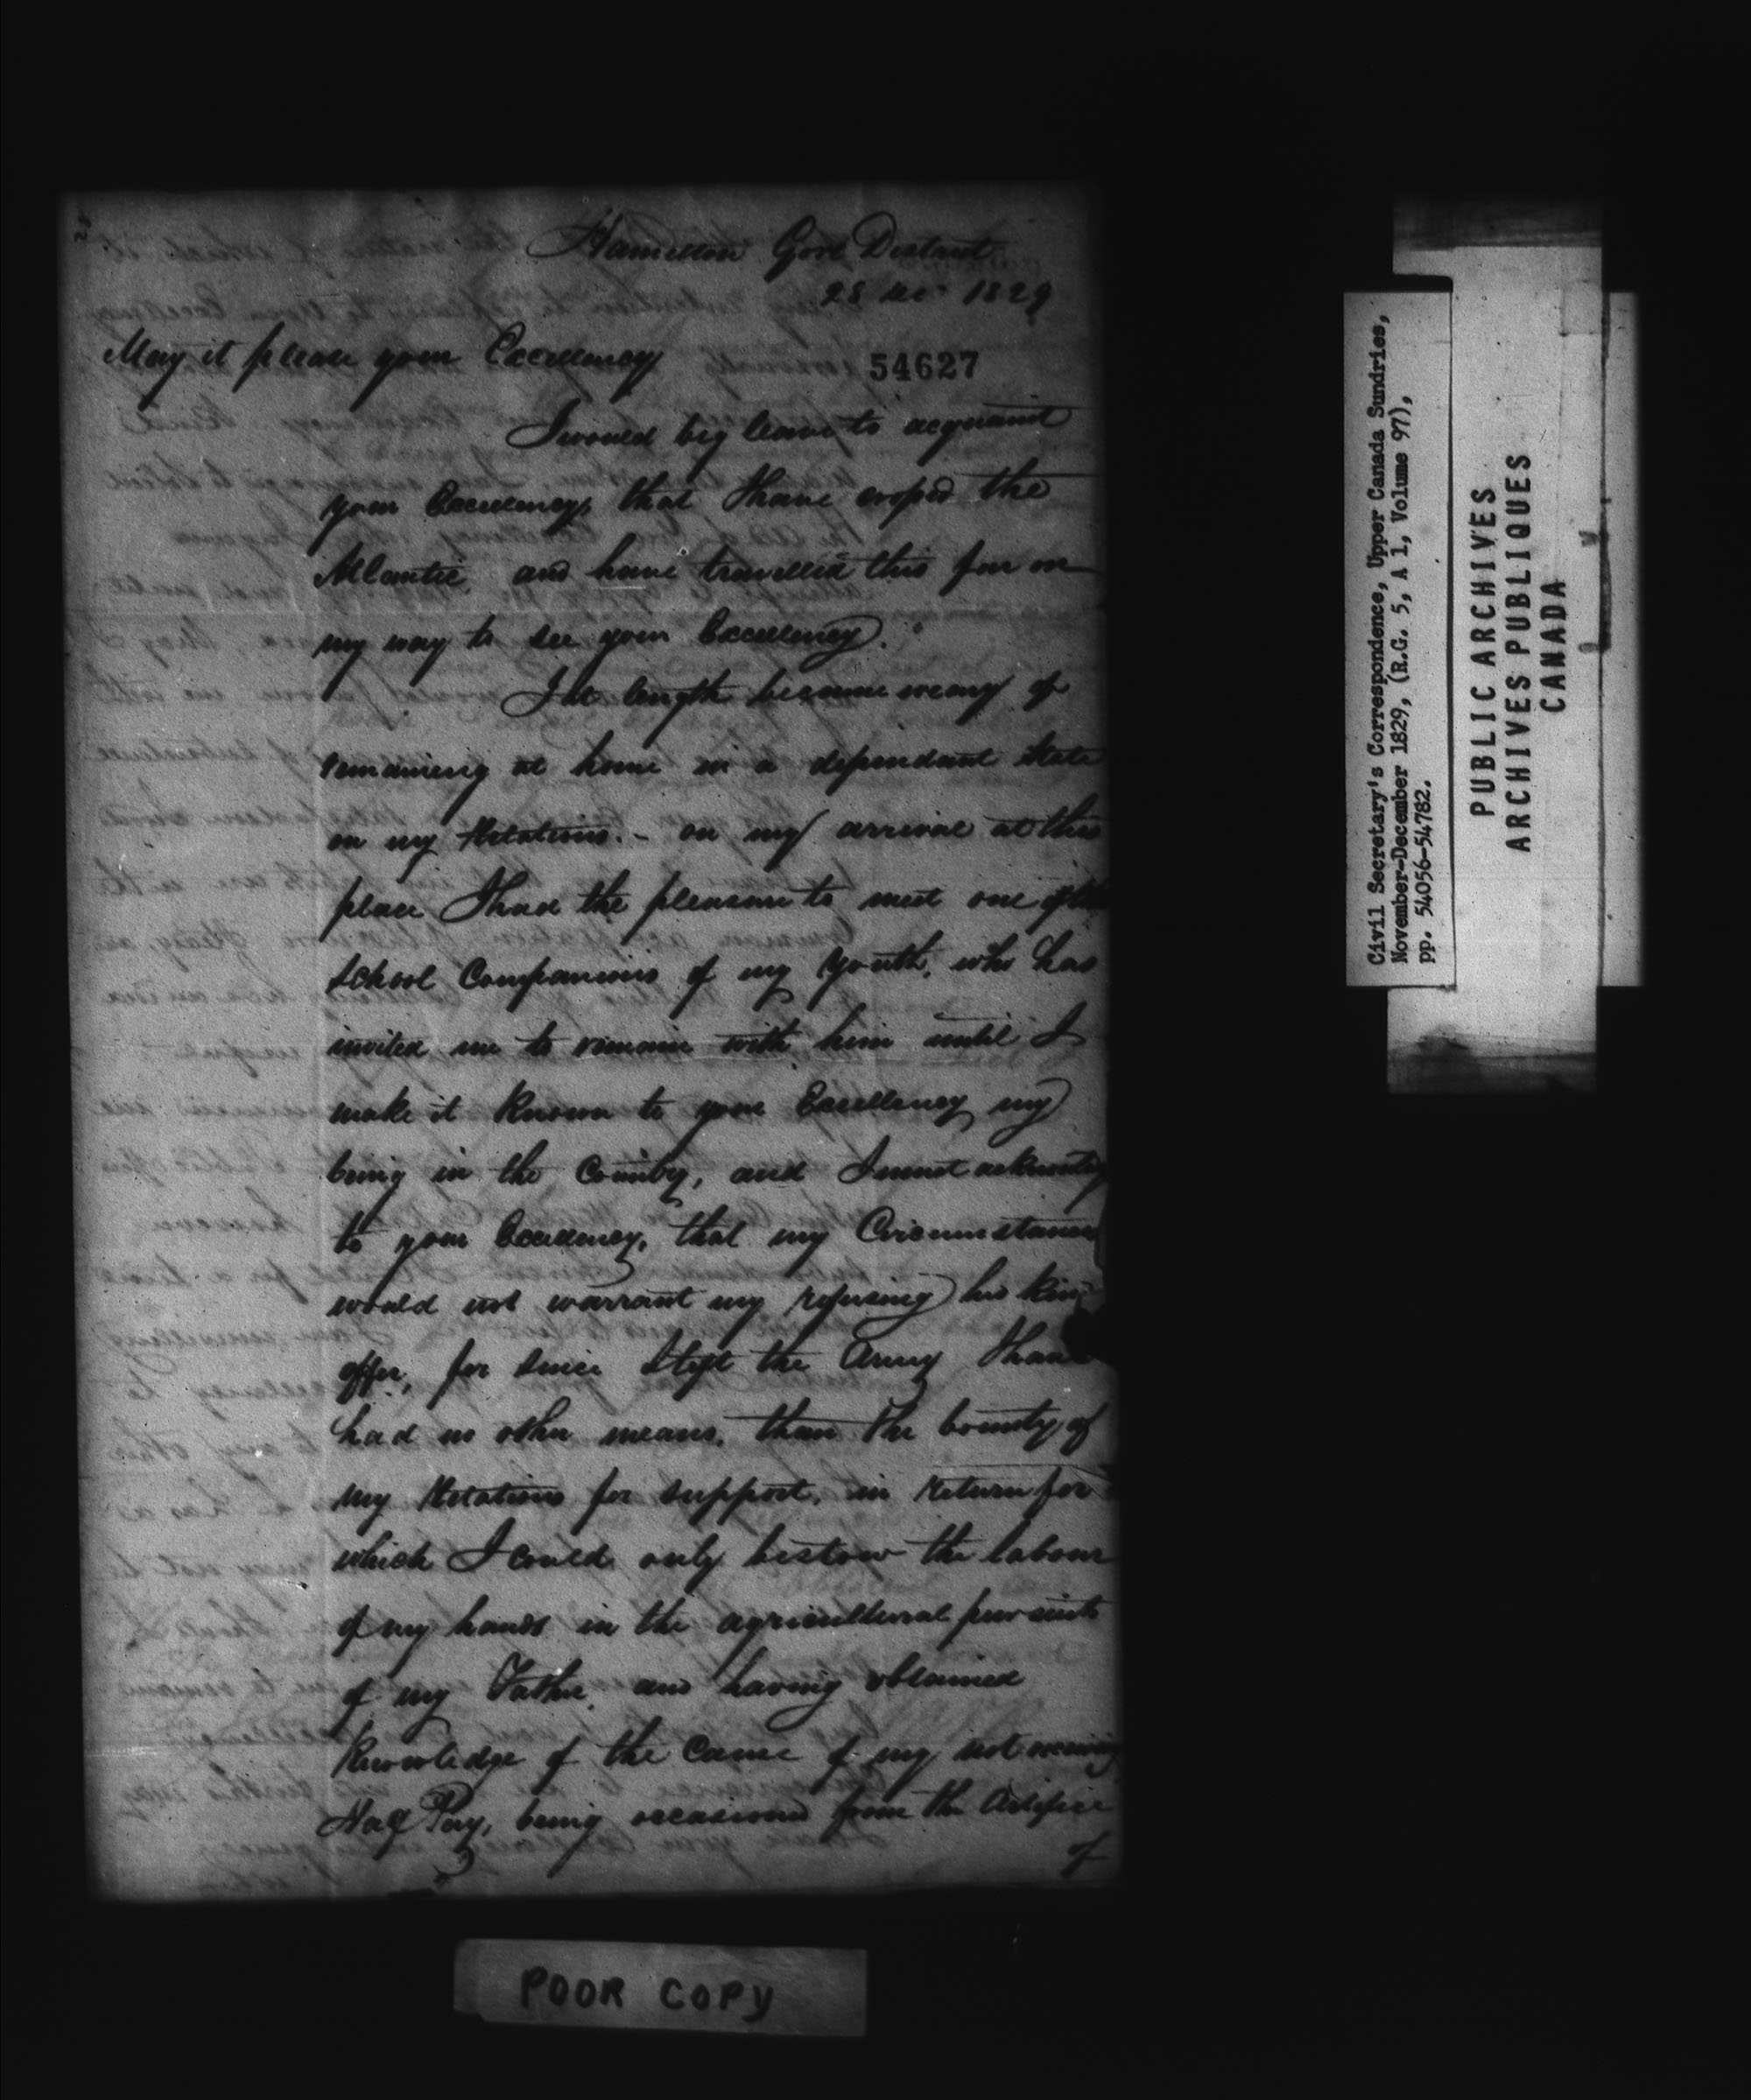 Hamilton Gore District
28 Decr 1829
May it please your Excellency
54627
I would beg leave to acquaint
your Excellency, that I have crossed the
Atlantic, and have travelled this far on
my way to see your Excellency.
I at length became weary of
remaining at home in a dependant State
on my Relations. - on my arrival at this
place I had the pleasure to meet one of the
School Companions of my Youth, who has
invited me to remain with him until I
make it known to your Excellency my
being in the Country, and I must acknowledge
to your Excellency, that my Circumstances
would not warrant my refusing his kind
offer, for since I left the Army I have
had no other means, than the bounty of
my Relations for support, in return for
which I could only bestow the labour
of my hands in the agricultural pursuits
of my Father, and having obtained
knowledge of the Cause of my not receiving
Half Pay, being occasioned from the Artifice
of
POOR COPY
Civil Secretary's Correspondence, Upper Canada Sundries,
November-December 1829, (R.G. 5, A 1, Volume 97),
pp. 54056-54782.
PUBLIC ARCHIVES
ARCHIVES PUBLIQUES
CANADA